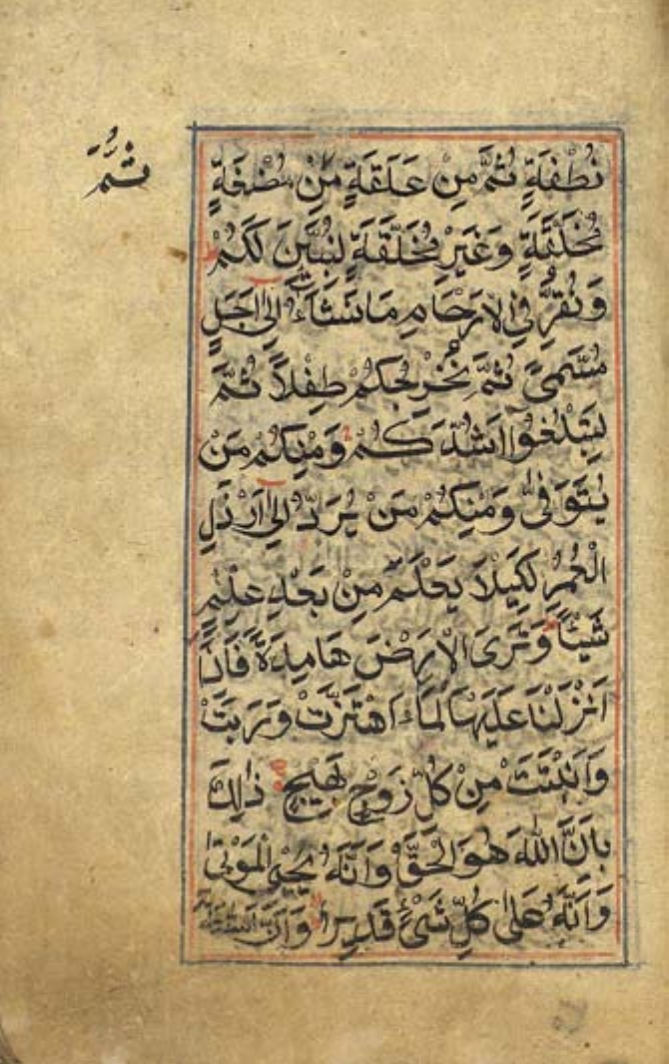 ثُمَّ
نُطْفَةٍ ثُمَّ مِنْ عَلَقَةٍ ثُمَّ مِنْ مُضْغَةٍ
مُخَلَّقَةٍ وَغَيْرِ مُخَلَّقَةٍ لِنُبَيِّنَ لَكُمْ
وَنُقِرُّ فِي الْاَرْحَامِ مَا نَشَاءُ اِلٰى اَجَلٍ
مُسَمًّى ثُمَّ نُخْرِجُكُمْ طِفْلًا ثُمَّ
لِتَبْلُغُوا اَشُدَّكُمْ وَمِنْكُمْ مَنْ
يُتَوَفّٰى وَمِنْكُمْ مَنْ يُرَدُّ اِلٰى اَرْذَلِ
الْعُمُرِ لِكَيْلَا يَعْلَمَ مِنْ بَعْدِ عِلْمٍ
شَيْئًا وَتَرَى الْاَرْضَ هَامِدَةً فَاِذَا
اَنْزَلْنَا عَلَيْهَا الْمَاءَ اهْتَزَّتْ وَرَبَتْ
وَاَنْبَتَتْ مِنْ كُلِّ زَوْجٍ بَهِيجٍ ذٰلِكَ
بِاَنَّ اللّٰهَ هُوَ الْحَقُّ وَاَنَّهُ يُحْيِ الْمَوْتٰى
وَاَنَّهُ عَلٰى كُلِّ شَيْءٍ قَدِيرٌ وَاَنَّ